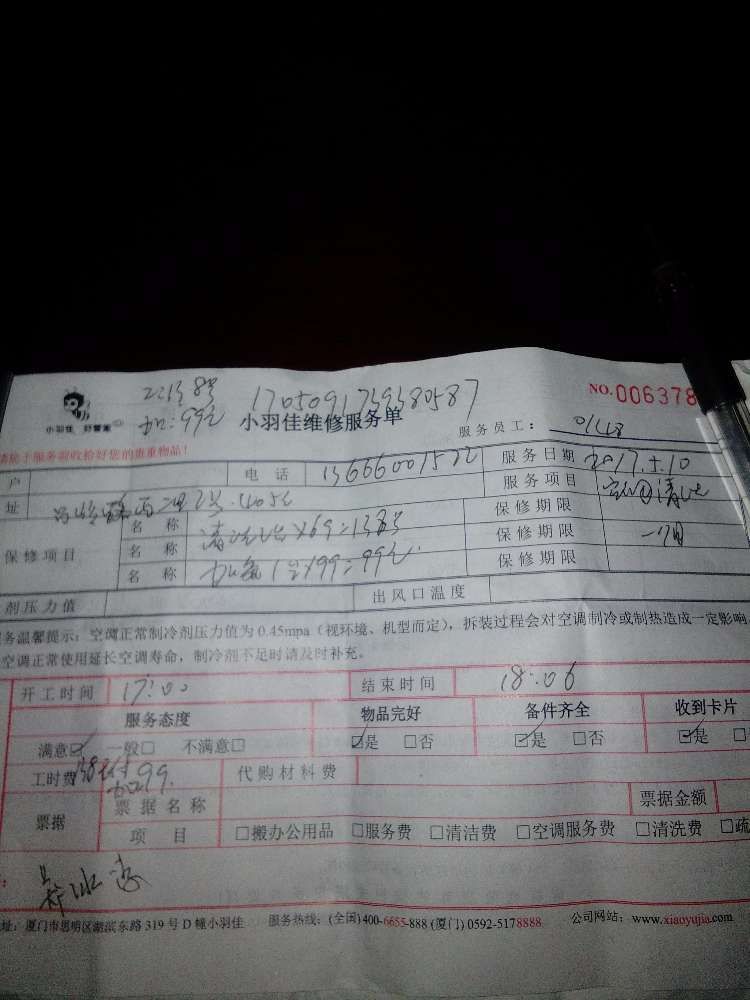 1705091739380587
NO.006378
加:99元
小羽佳 好管家
小羽佳维修服务单
服务员工:
请施于服务前收拾好您的贵重物品!
户 电话 13666001522 服务日期 2017.5.10
址 服务项目 空调清洗
名称 清洗2台×69=138元 保修期限
保修项目 名称 保修期限 一个月
名称 加氟1台×99=99元. 保修期限
剂压力值 出风口温度
务温馨提示:空调正常制冷剂压力值为 0.45mpa(视环境、机型而定),拆装过程会对空调制冷或制热造成一定影响
空调正常使用延长空调寿命,制冷剂不足时请及时补充。
开工时间 17:00 结束时间 18:06
服务态度 物品完好 备件齐全 收到卡片
满意☑ 一般□ 不满意□ ☑是 □否 ☑是 □否 ☑是 □
工时费 99. 代购材料费
票据 票据名称 票据金额
项目 □搬办公用品 □服务费 □清洁费 □空调服务费 □清洗费 □疏
址:厦门市思明区湖滨东路 319 号 D 幢小羽佳 服务热线:(全国)400-6655-888 (厦门) 0592-5178888 公司网站:www.xiaoyujia.com